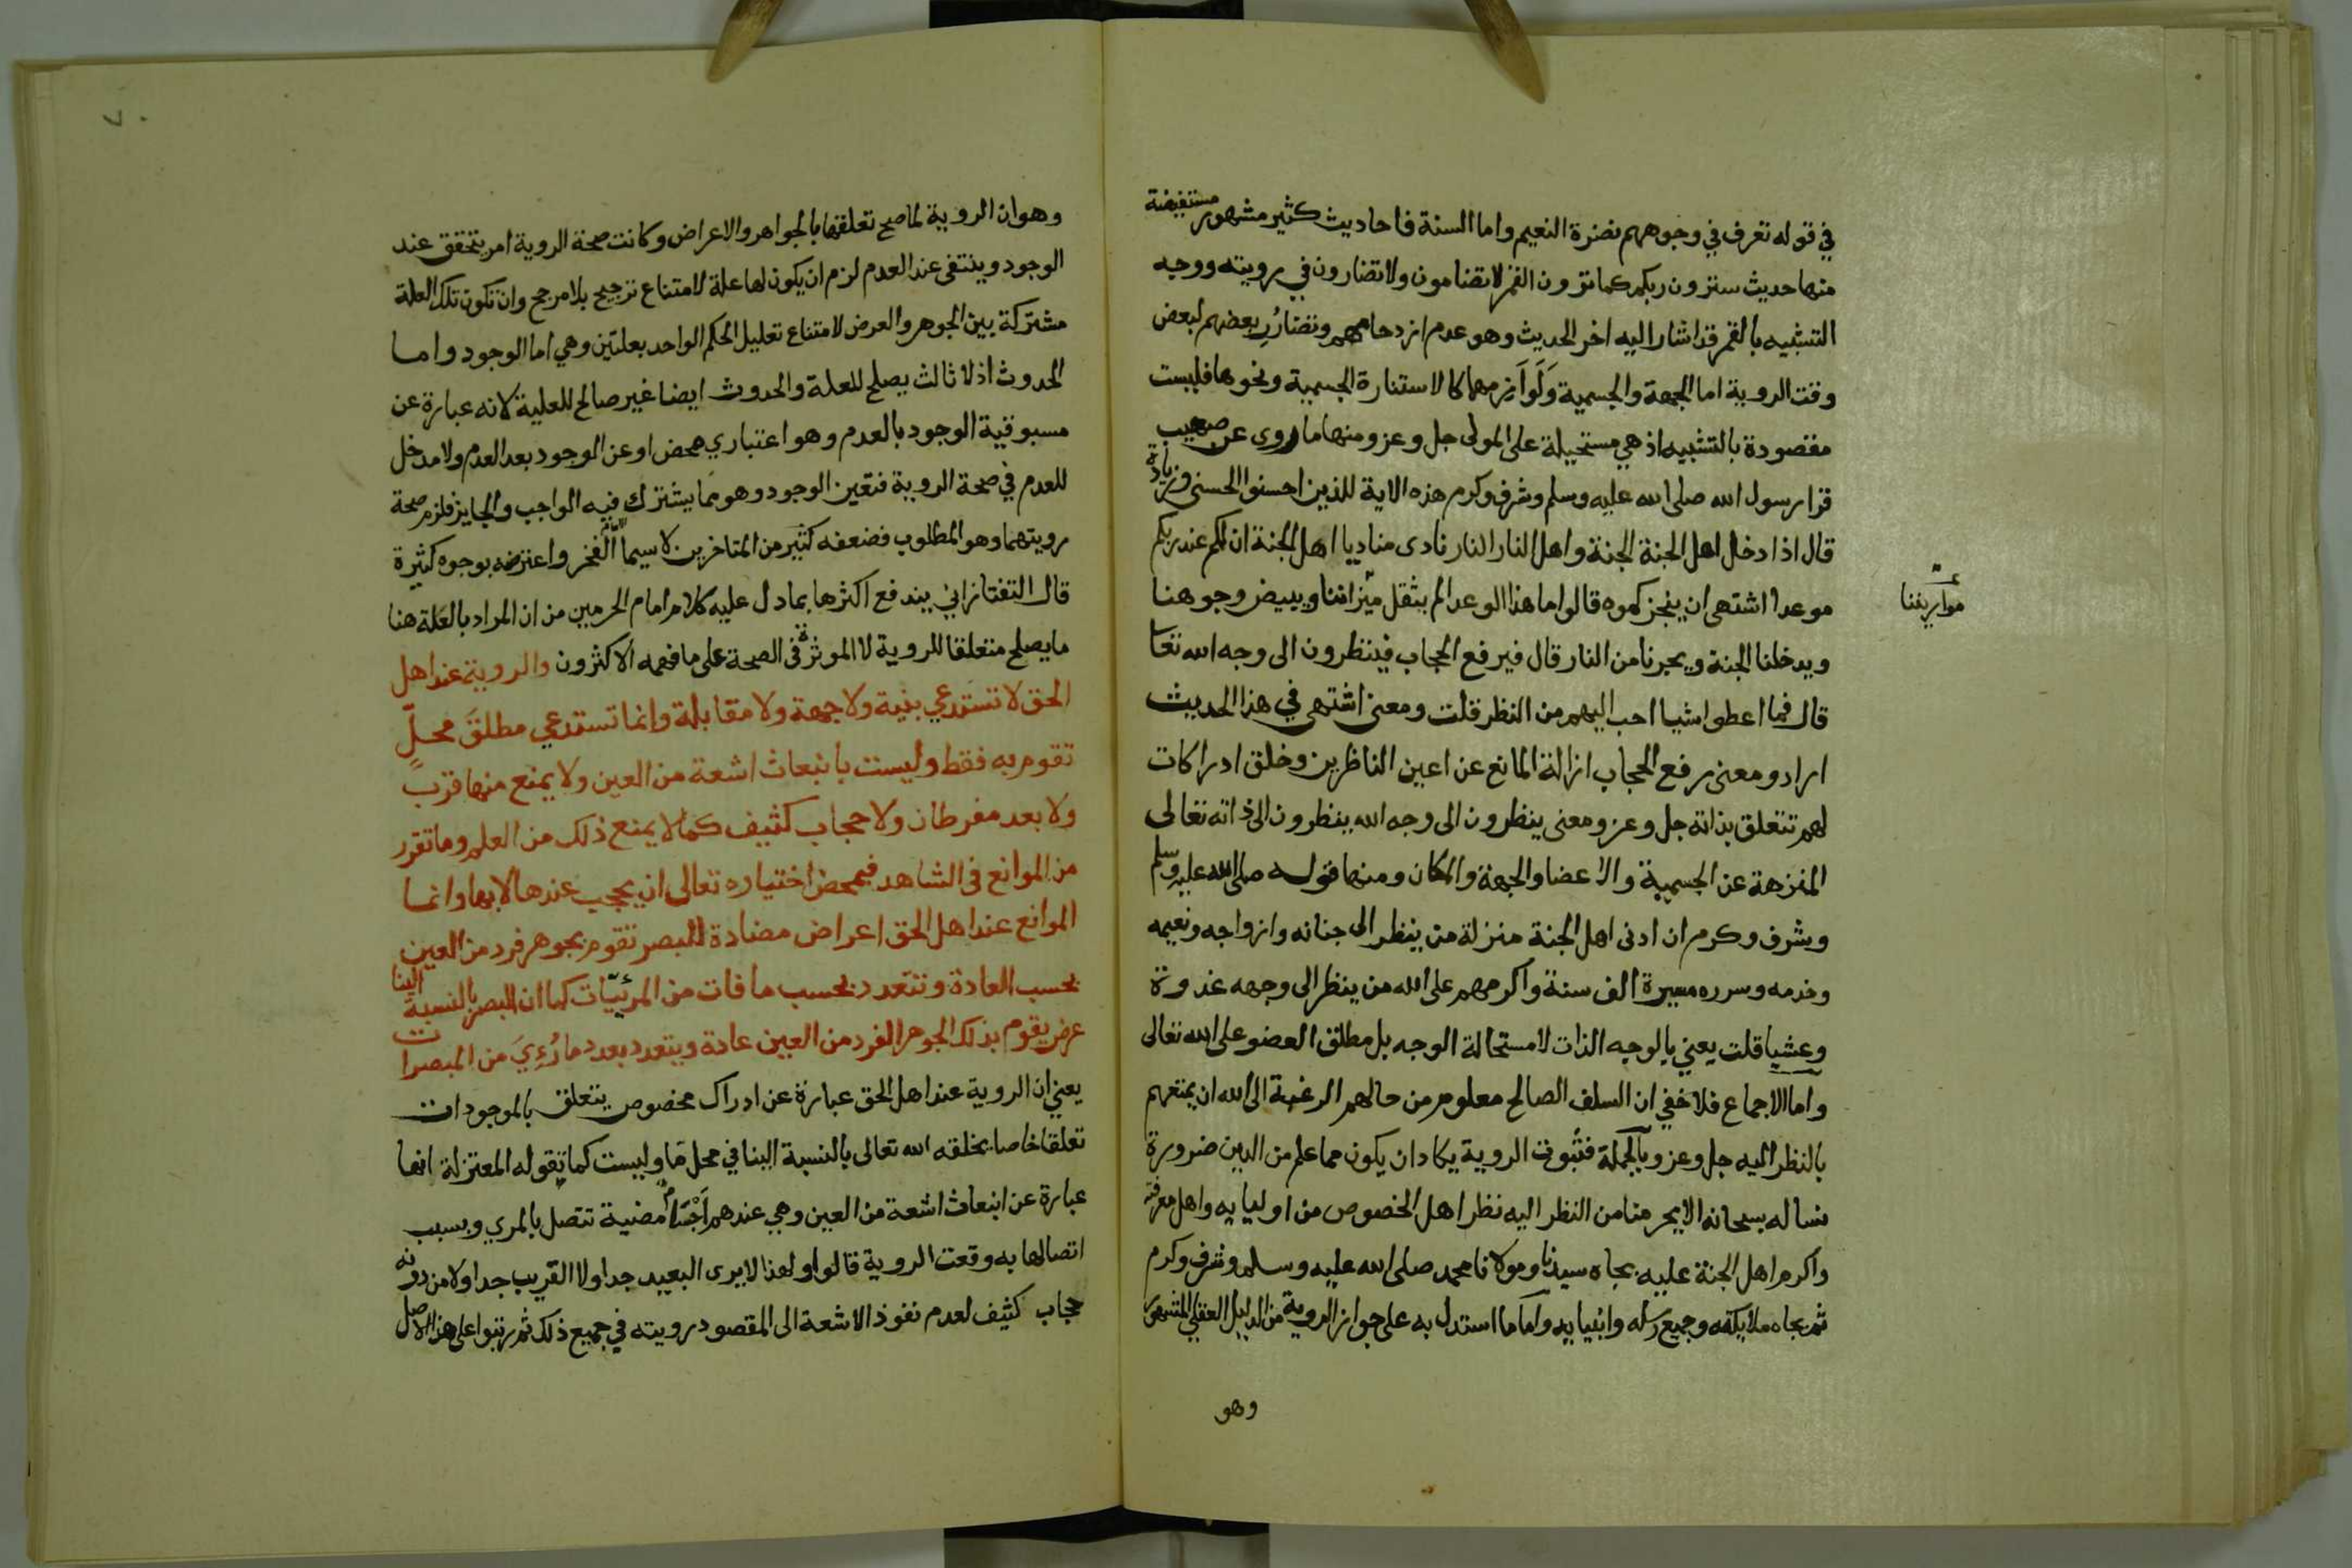 في قوله تعرف في وجوههم نضرة النعيم واما السنة فاحاديث كثير مشهور مستفيضة
منها حديث سترون ربكم كما ترون القمر لا تضامون ولا تضارون في رويته ووجه
التشبيه بالقمر قد اشار اليه اخر الحديث وهو عدم ازدحامهم وتضارُرِ بعضهم لبعض
وقت الروية اما الجهة والجسمية وَلَوازمهما كالاستنارة الجسمية ونحوها فليست
مقصودة بالتشبيه اذ هي مستحيلة على المولى جل وعز ومنها ما روى عن صهيب
قرا رسول الله صلى الله عليه وسلم وشرف وكرم هذه الاية للذين احسنوا الحسنى وزيادة
قال اذا دخل اهل الجنة الجنة واهل النار النار نادى مناد يا اهل الجنة ان لكم عند ربكم
موعدا اشتهى ان ينجزكموه قالوا ما هذا الوعد الم يثقل ميزاننا ويبيض وجوهنا
موازيننا
ويدخلنا الجنة ويجرنا من النار قال فيرفع الحجاب فينظرون الى وجه الله تعا
قال فما اعطوا شيا احب اليهم من النظر قلت ومعنى اشتهى في هذا الحديث
اراد ومعنى رفع الحجاب ازالة المانع عن اعين الناظرين وخلق ادراكات
لهم تتعلق بذاته جل وعز ومعنى ينظرون الى وجه الله ينظرون الى ذاته تعالى
المنزهة عن الجسمية والاعضا والجهة والمكان ومنها قوله صلى الله عليه وسلم
وشرف وكرم ان ادنى اهل الجنة منزلة من ينظر الى جنانه وازواجه ونعيمه
وخدمه وسرره مسيرة الف سنة واكرمهم على الله من ينظر الى وجهه غدوة
وعشيا قلت يعني بالوجه الذات لاستحالة الوجه بل مطلق العضو على الله تعالى
واما الاجماع فلا خفي ان السلف الصالح معلوم من حالهم الرغبة الى الله ان يمتعهم
بالنظر اليه جل وعز وبالجملة فثبوت الروية يكاد ان يكون مما علم من الدين ضرورة
نساله سبحانه الا يحرمنا من النظر اليه نظر اهل الخصوص من اوليايه واهل معرفته
واكرم اهل الجنة عليه بجاه سيدنا ومولانا محمد صلى الله عليه وسلم وشرف وكرم
ثم بجاه ملايكته وجميع رسله وانبيايه واما ما استدل به على جواز الروية من الدليل العقلي المشهور
وهو
وهو ان الروية لما صح تعلقها بالجواهر والاعراض وكانت صحة الروية امر يتحقق عند
الوجود وينتفى عند العدم لزم ان يكون لها علة لامتناع ترجيح بلا مرجح وان تكون تلك العلة
مشتركة بين الجوهر والعرض لامتناع تعليل الحكم الواحد بعلتين وهي اما الوجود واما
الحدوث اذ لا ثالث يصلح للعلة والحدوث ايضا غير صالح للعلية لانه عبارة عن
مسبوقية الوجود بالعدم وهو اعتباري محض او عن الوجود بعد العدم ولا مدخل
للعدم في صحة الروية فتعين الوجود وهو مما يشترك فيه الواجب والجايز فلزم صحة
رويتهما وهو المطلوب فضعفه كثير من المتاخرين لا سيما الفخر واعترضه بوجوه كثيرة
قال التفتازاني يندفع اكثرها بما دل عليه كلام امام الحرمين من ان المراد بالعلة هنا
ما يصلح متعلقا للروية لا الموثر في الصحة على ما فهمه الاكثرون والروية عند اهل
الحق لا تستدعي بنية ولا جهة ولا مقابلة وانما تستدعي مطلقَ محلٍّ
تقوم به فقط وليست بانبعاث اشعة من العين ولا يمنع منها قرب
ولا بعد مفرطان ولا حجاب كثيف كما لا يمنع ذلك من العلم وما تقرر
من الموانع في الشاهد فبمحض اختياره تعالى ان يحجب عندها لا بها وانما
الموانع عند اهل الحق اعراض مضادة للبصر تقوم بجوهر فرد من العين
بحسب العادة وتتعدد بحسب ما فات من المرئيّات كما ان البصر بالنسبة الينا
عرض يقوم بذلك الجوهر الفرد من العين عادة ويتعدد بعدد ما رُءِيَ من المبصرات
يعني ان الروية عند اهل الحق عبارة عن ادراك مخصوص يتعلق بالموجودات
تعلقا خاصا يخلقه الله تعالى بالنسبة الينا في محل مّا وليست كما تقوله المعتزلة انها
عبارة عن انبعاث اشعة من العين وهي عندهم اَجْسَام مضيية تتصل بالمري وبسبب
اتصالها به وقعت الروية قالوا ولهذا لا يرى البعيد جدا ولا القريب جدا ولا من دونه
حجاب كثيف لعدم نفوذ الاشعة الى المقصود رويته في جميع ذلك ثم رتبوا على هذا الاصل